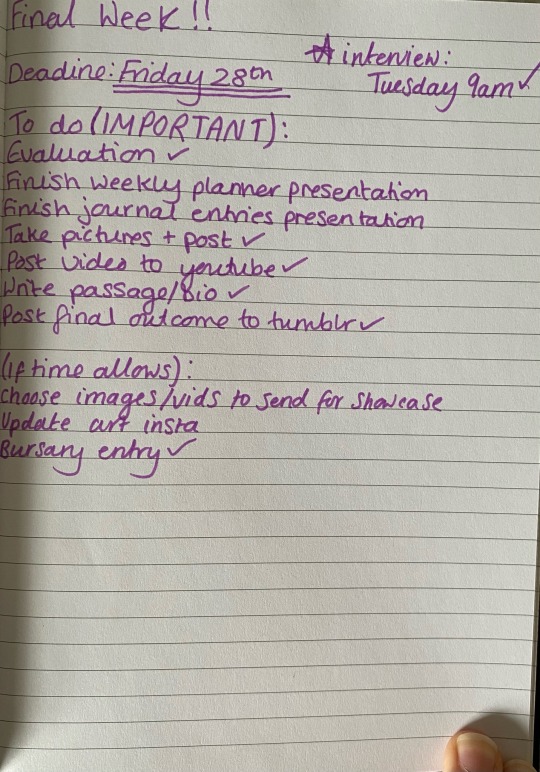 Final Week!!
☆ interview:
Tuesday 9am ✓
Deadine: Friday 28th
To do (IMPORTANT):
Evaluation ✓
Finish weekly planner presentation
Finish journal entries presentation
Take pictures + post ✓
Post video to youtube ✓
Write passage/Bio ✓
Post final outcome to tumblr ✓
(If time allows):
Choose images/vids to send for showcase
Update art insta
Bursary entry ✓